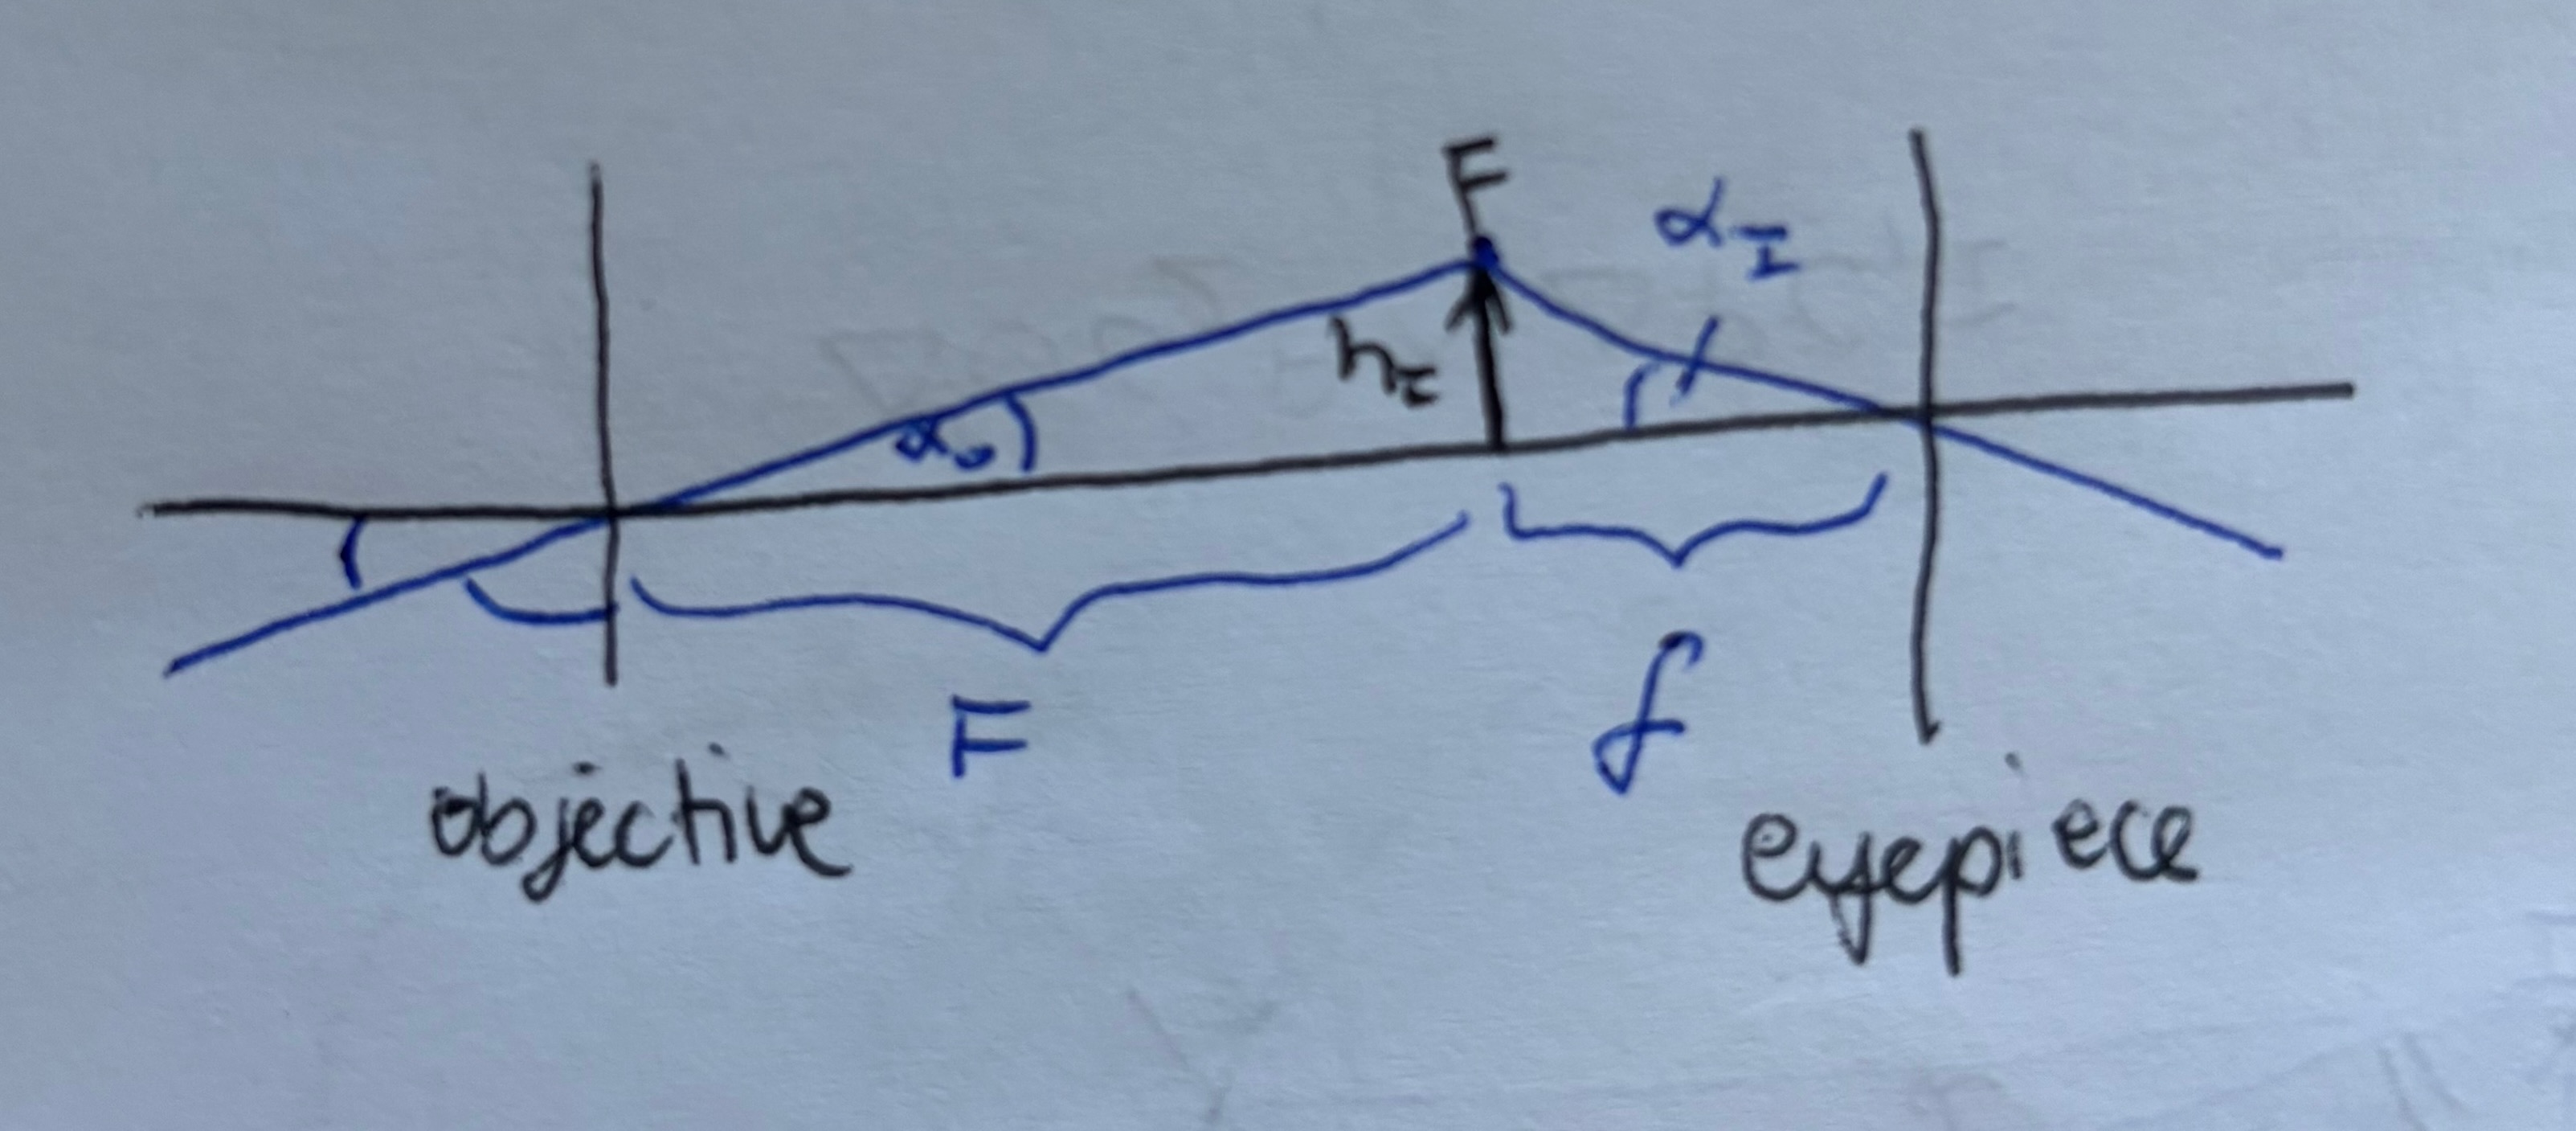 F
α_I
h_I
α_o
F
f
objective
eyepiece